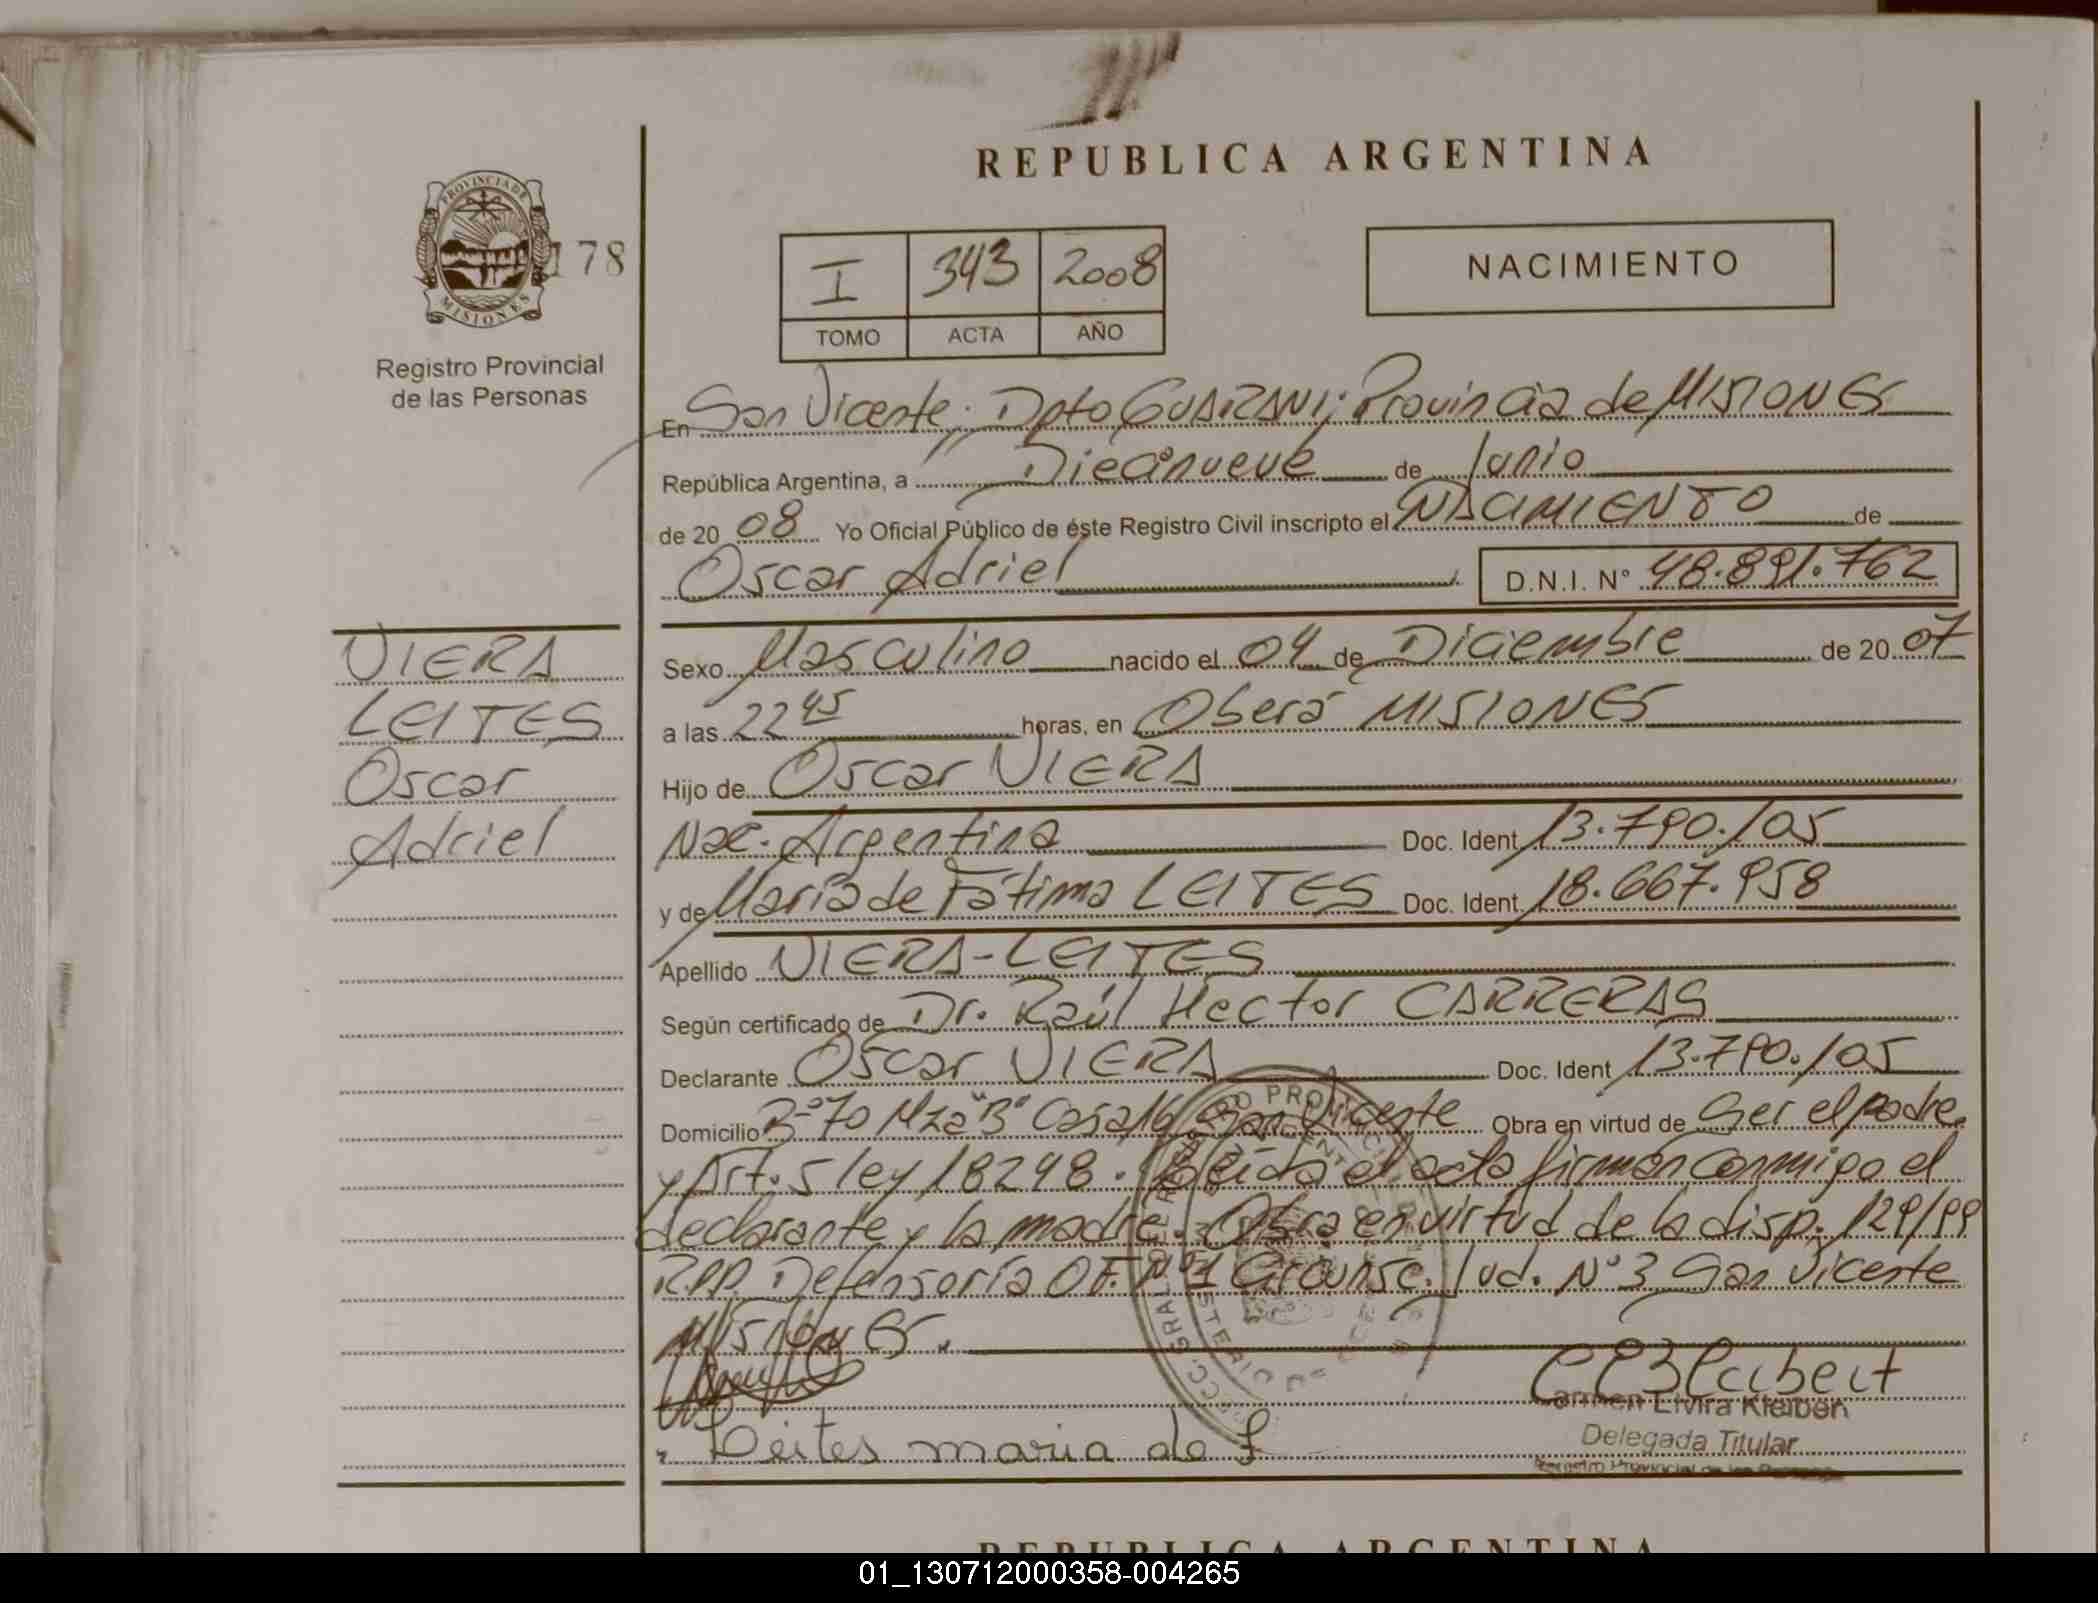 REPUBLICA ARGENTINA
PROVINCIA DE
MISIONES
178
Registro Provincial
de las Personas
I 343 2008
TOMO ACTA AÑO
NACIMIENTO
En San Vicente; Dpto GUARANI; Provincia de MISIONES
República Argentina, a Diecinueve de Junio
de 20 08 Yo Oficial Público de éste Registro Civil inscripto el NACIMIENTO de
Oscar Adriel D.N.I. N° 48.891.762
VIERA
LEITES
Oscar
Adriel
Sexo Masculino nacido el 04 de Diciembre de 20 07
a las 22 45 horas, en Oberá MISIONES
Hijo de Oscar VIERA
Nac. Argentina Doc. Ident 13.790.105
y de María de Fátima LEITES Doc. Ident. 18.667.958
Apellido VIERA-LEITES
Según certificado de Dr. Raúl Hector CARRERAS
Declarante Oscar VIERA Doc. Ident 13.790.105
Domicilio B° 70 Mza "B" Casa 16 San Vicente Obra en virtud de Ser el padre
y Art. 5 ley 18248. Leída el acta firman conmigo el
declarante y la madre. Obra en virtud de la disp. 129/99
R.P.P. Defensoría OF. N° 1 Circunsc. Jud. N° 3 San Vicente
MISIONES.
Carmen Elvira Kleibert
Delegada Titular
Registro Provincial de las Personas
Leites maria de f
REPUBLICA ARGENTINA
01_130712000358-004265